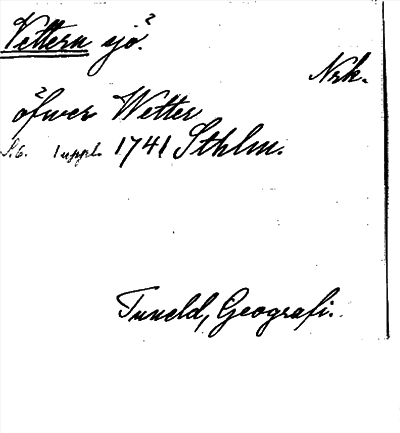 Vettern sjö.
Nrk.
öfwer Wetter
S.6. 1 uppl. 1741 Sthlm.
Tuneld, Geografi.